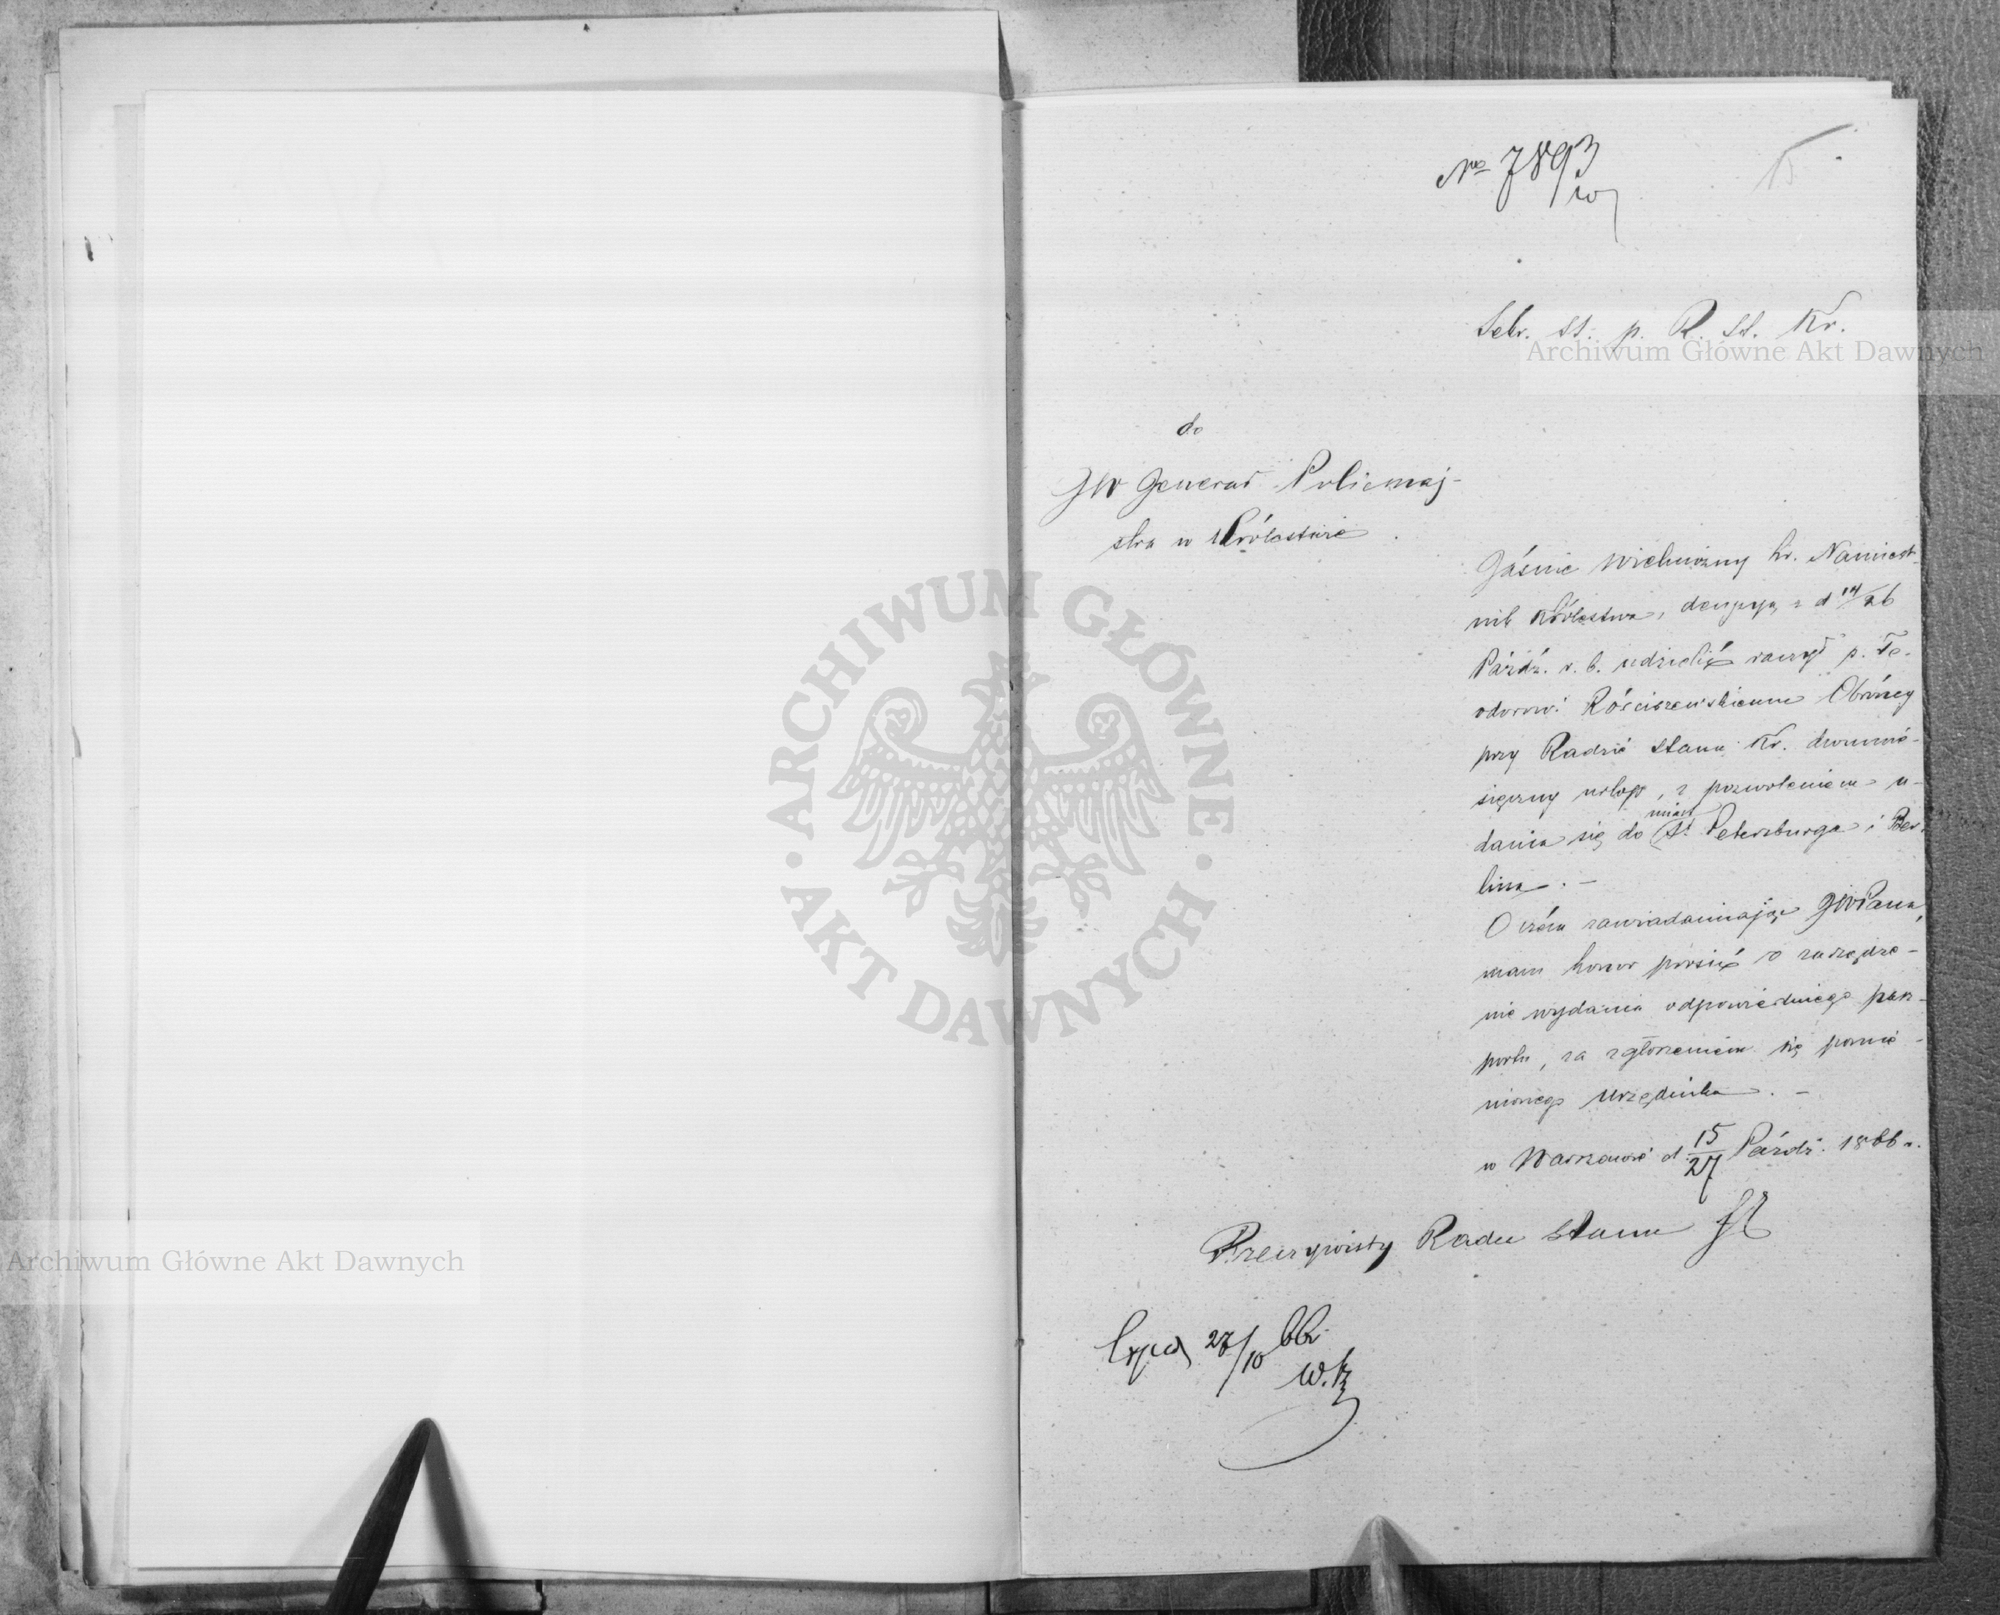 № 7893
15
Sekr. St. p. R. St. Kr.
do
JW Generał Policmaj-
stra w Królestwie
Jaśnie Wielmożny hr. Namiest-
nik Królestwa, decyzyą z d 14/26
Paźdz. r. b. udzielić raczył p. Te-
odorowi Rościszewskiemu Obrońcy
przy Radzie Stanu Kr. dwumie-
sięczny urlop, z pozwoleniem u-
dania się do miast St Petersburga i Ber-
lina. -
O czém zawiadamiając JWPana,
mam honor prosić o zarządze-
nie wydania odpowiedniego pasz-
portu, za zgłoszeniem się pomie-
nionego Urzędnika. -
w Warszawie d 15/27 Paźdz. 1866 r.
Rzeczywisty Radca Stanu
27/10 66 r.
W. K
Archiwum Główne Akt Dawnych
Archiwum Główne Akt Dawnych
ARCHIWUM GŁÓWNE · AKT DAWNYCH ·